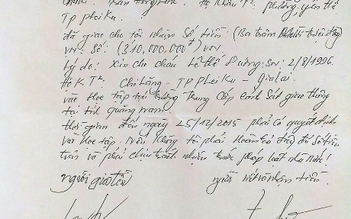 phường yên thế
TP pleiku.
đã giao cho tôi nhận số tiền (Ba trăm mười triệu
VN. Số: (310,000,000đ) VN.
lý do: Xin cho cháu Lê thế Sương: SN: 2/8/1996
HKTT. Chi Lăng - TP pleiku - gialai
vào học tập tại trường Trung cấp Cảnh Sát giao thông
tại tỉnh quảng nam
thời gian đến ngày 25/12/2015 phải có quyết định
vào học tập. Nếu không tôi phải hoàn trả đầy đủ số tiền
trên và phải chịu trách nhiệm trước pháp luật nhà nước!
người giao tiền người nhận tiền